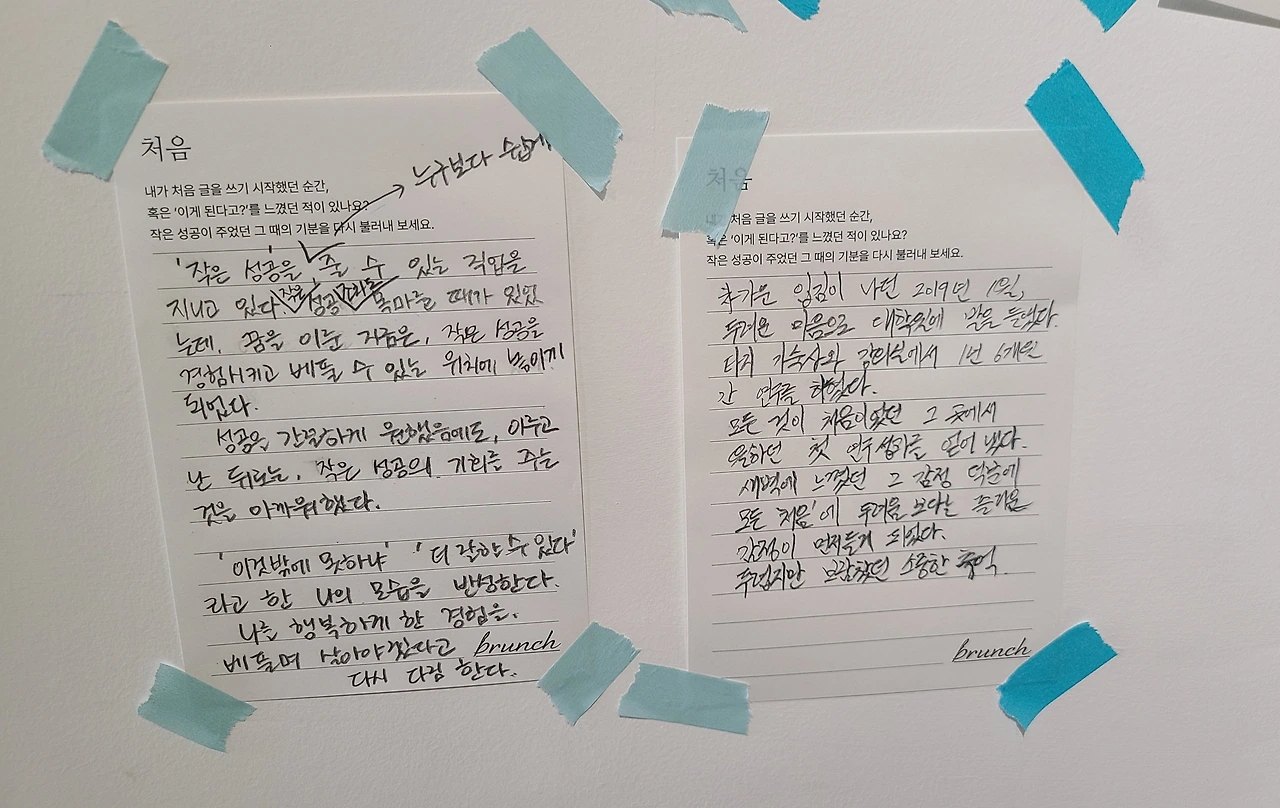 처음
내가 처음 글을 쓰기 시작했던 순간,
혹은 '이게 된다고?'를 느꼈던 적이 있나요?
작은 성공이 주었던 그 때의 기분을 다시 불러내 보세요.
누구보다 쉽게
'작은 성공을 줄 수 있는 직업을
지니고 있다. 작은 성공 목마를 때가 있었
는데, 꿈을 이룬 지금은, 작은 성공을
경험시키고 베풀 수 있는 위치에 놓이게
되었다.
성공을 간절하게 원했음에도, 이루고
난 뒤로는, 작은 성공의 기회를 주는
것을 아까워했다.
'이것밖에 못하냐' '더 잘할 수 있다'
라고 한 나의 모습을 반성한다.
나를 행복하게 한 경험을,
베풀며 살아야겠다고
다시 다짐 한다.
brunch
처음
내가 처음 글을 쓰기 시작했던 순간,
혹은 '이게 된다고?'를 느꼈던 적이 있나요?
작은 성공이 주었던 그 때의 기분을 다시 불러내 보세요.
차가운 입김이 나던 2019년 1월,
두려운 마음으로 대학원에 발을 들였다.
타지 기숙사와 감리실에서 1년 6개월
간 연구를 하였다.
모든 것이 처음이었던 그 곳에서
원하던 첫 연구성과를 얻어 냈다.
새벽에 느꼈던 그 감정 덕분에
모든 '처음'에 두려움 보다는 즐거운
감정이 먼저들게 되었다.
두렵지만 보람찼던 소중한 추억.
brunch